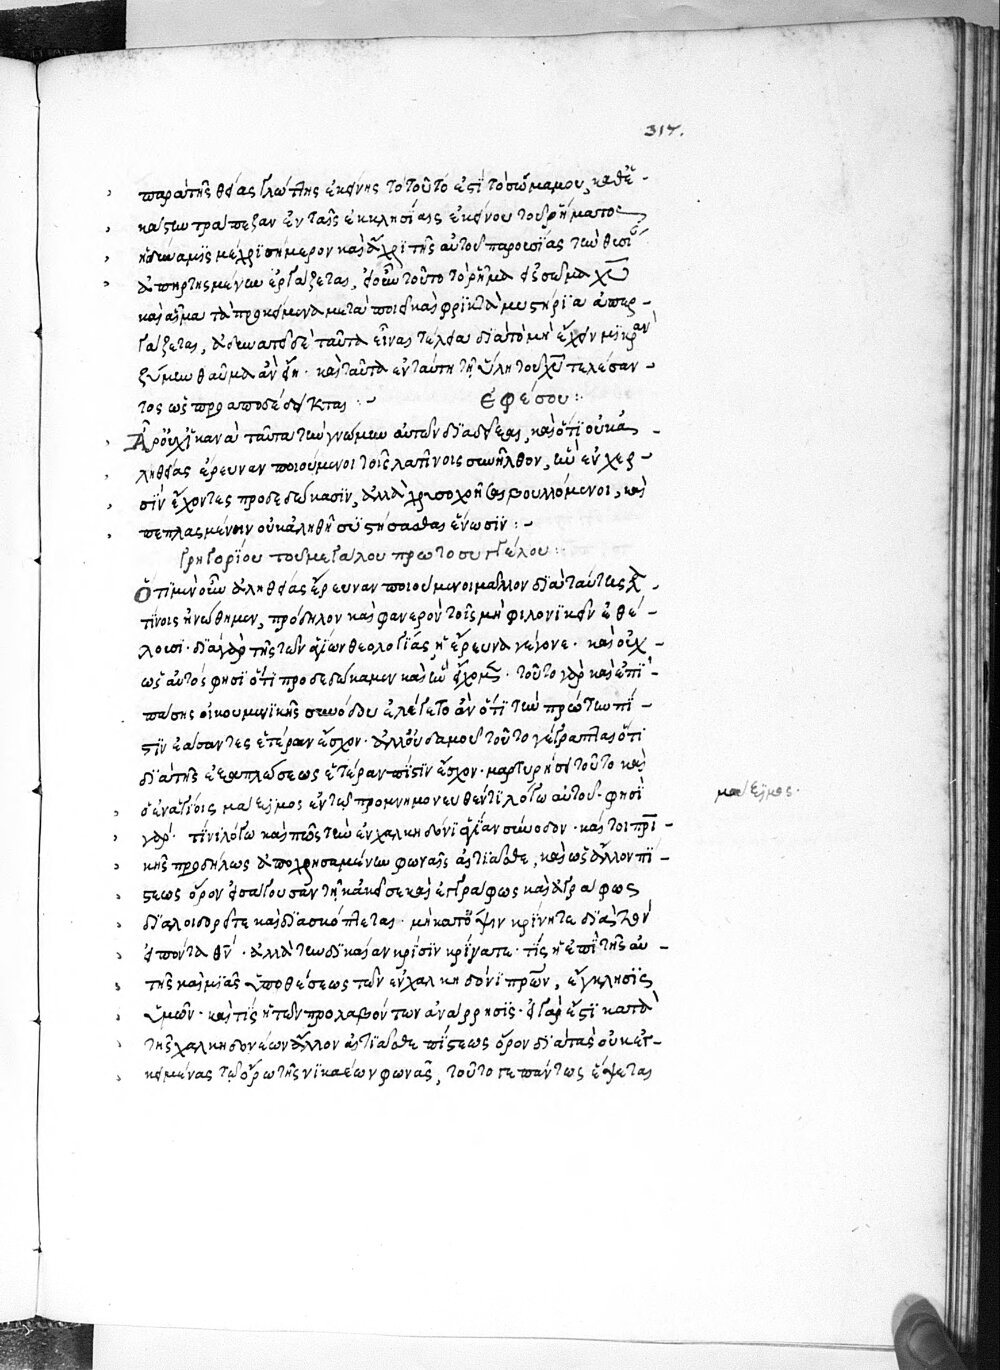 317.
παρὰ τῆς θείας γλώττης ἐκείνης τὸ τοῦτό ἐστι τὸ σῶμα μου, καθ' ἑ-
κάστην τράπεζαν ἐν ταῖς ἐκκλησίαις ἐκείνου τοῦ ῥήματος
ἡ δύναμις μέχρι σήμερον καὶ ἄχρι τῆς αὐτοῦ παρουσίας τὴν θυσί
ἀπηρτισμένην ἐργάζεται, εἰ οὖν τοῦτο τὸ ῥῆμα σῶμα χῦ
καὶ αἷμα τὰ προκείμενα μεταποιεῖ καὶ φρικτὰ μυστήρια ἀπερ-
γάζεται, διὰ τὸ μὴ ἔχειν μικρὰν
ζύμην θαῦμα ἂν εἴη· καὶ ταῦτα ἐν ταύτη τῆ ὕλη τοῦ χῦ τελέσαν-
τος ὡς προαποδέδεικται :~ Ἐφέσου :
Ἆρ' οὐχ ἱκανὰ ταῦτα τὴν γνώμην αὐτῶν διαδεῖξαι, καὶ ὅτι οὐκ ἀ-
ληθείας ἔρευναν ποιούμενοι τοῖς λατίνοις συνῆλθον, ἣν ἐν χερ-
σὶν ἔχοντες προδεδώκασιν, ἀλλὰ χρυσοχοῆσαι βουλόμενοι, καὶ
πεπλασμένην οὐκ ἀληθῆ συστήσασθαι ἕνωσιν :~
Γρηγορίου τοῦ μεγάλου πρωτοσυγγέλου :
Ὅτι μὲν οὖν ἀληθείας ἔρευναν ποιούμενοι μᾶλλον διὰ ταύτης λα
τίνοις ἡνώθημεν, πρόδηλον καὶ φανερὸν τοῖς μὴ φιλονικεῖν ἐθέ-
λουσι· διὰ γὰρ τῆς τῶν ἁγίων θεολογίας ἡ ἔρευνα γέγονε· καὶ οὐχ
ὡς αὐτός φησι ὅτι προδεδώκαμεν καὶ ἣν εἴχομεν· τοῦτο γὰρ καὶ ἐπὶ
πάσης οἰκουμενικῆς συνόδου ἐλέγετο ἂν ὅτι τὴν πρώτην πί-
στιν ἐάσαντες ἑτέραν ἔσχον· ἀλλ' οὐδαμοῦ τοῦτο γέγραπται ὅτι
διὰ τῆς ἐξαπλώσεως ἑτέραν πίστιν ἔσχον· μαρτυρήσει τοῦτο καὶ
ὁ ἐν ἁγίοις μάξιμος ἐν τῷ προμνημονευθέντι λόγω αὐτοῦ· φησὶ
μάξιμος.
γάρ· τίνι λόγω καὶ πῶς τὴν ἐν χαλκηδόνι ἁγίαν σύνοδον· καί τοι πρι
κῆς προδήλως ἀποχρησαμένην φωναῖς αἰτιᾶσθε, καὶ ὡς ἄλλον πί-
στεως ὅρον εἰσάγουσαν τῇ κἀκεῖσε καὶ ἐγγράφως καὶ ἀγράφως
διαλοιδορεῖτε καὶ διασκώπτετε· μὴ κατ' ὄψιν κρίνητε διὰ τὸν
εἰπόντα θν· ἀλλὰ τὴν δικαίαν κρίσιν κρίνατε· τίς ἡ ἐπὶ τῆς αὐ
τῆς καὶ μιᾶς ὑποθέσεως τῶν ἐν χαλκηδόνι πρων, ἔγκλησις
ὑμῶν· καὶ τίς ἡ τῶν προλαβόντων ἀνάρρησις· εἰ γάρ ἐστι κατὰ
τῆς χαλκηδονέων ἄλλον αἰτιᾶσθε πίστεως ὅρον διὰ τὰς οὐκ ἐγ-
κειμένας τῷ ὅρω τῆς νικαέων φωνάς, τοῦτό γε πάντως ἕψεται